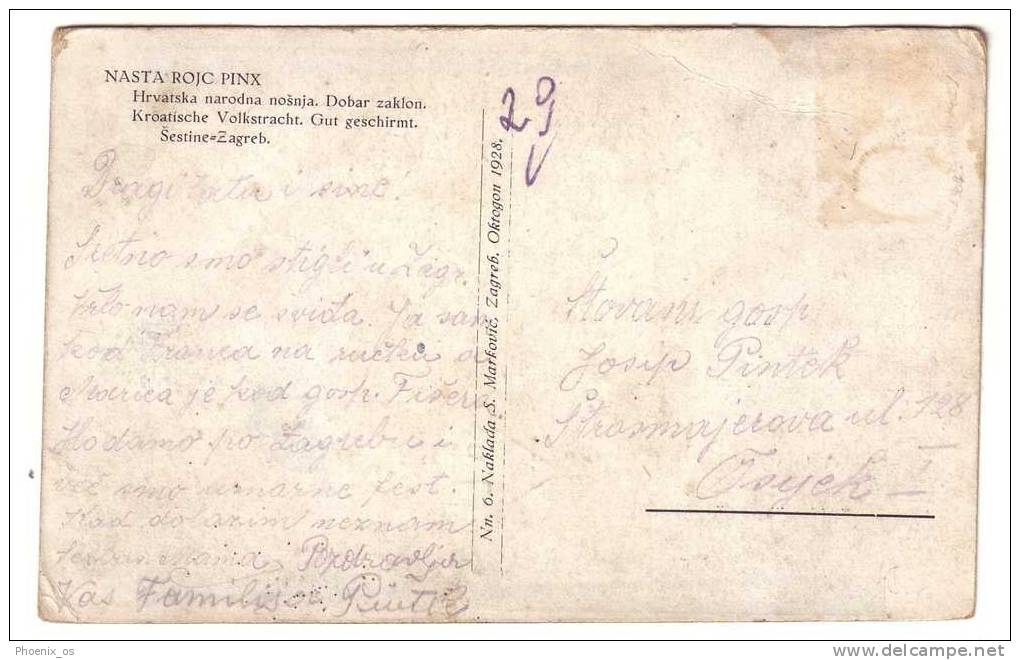 NASTA ROJC PINX
Hrvatska narodna nošnja. Dobar zaklon.
Kroatische Volkstracht. Gut geschirmt.
Šestine=Zagreb.
29
Dragi tata i
Sretno smo stigli u Zagr.
vrlo nam se sviđa. Ja sam
kod Franca na ručku a
Marica je kod gosp. Fišera
Hodamo po Zagrebu i
već smo umarne fest.
Kad dolazim neznam
mama Pozdravlja
Vas Familija Pintek
Nn. 6. Naklada S. Marković, Zagreb, Oktogon 1928.
Štovani gosp
Josip Pintek
Štrosmajerova ul. 28
Osijek
Phoenix_os